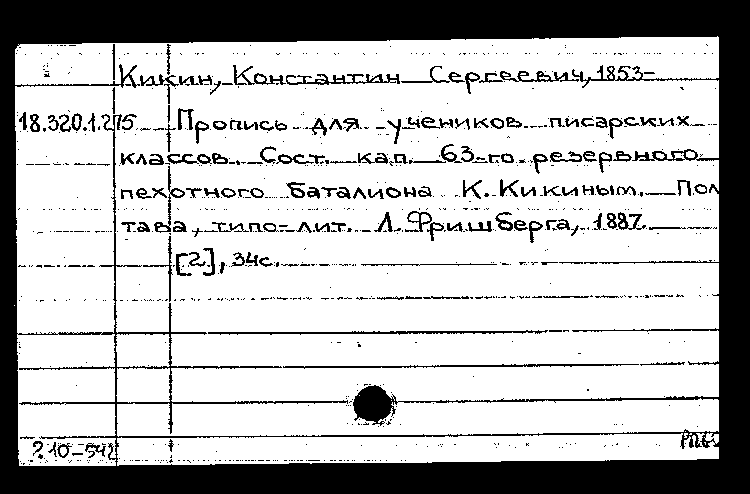 Кикин, Константин Сергеевич, 1853-
18.320.1.275 Пропись для учеников писарских
классов. Сост. кап. 63-го резервного
пехотного баталиона К. Кикиным. Пол
тава, типо-лит. Л. Фришберга, 1887.
[2], 34с.
?.10-542